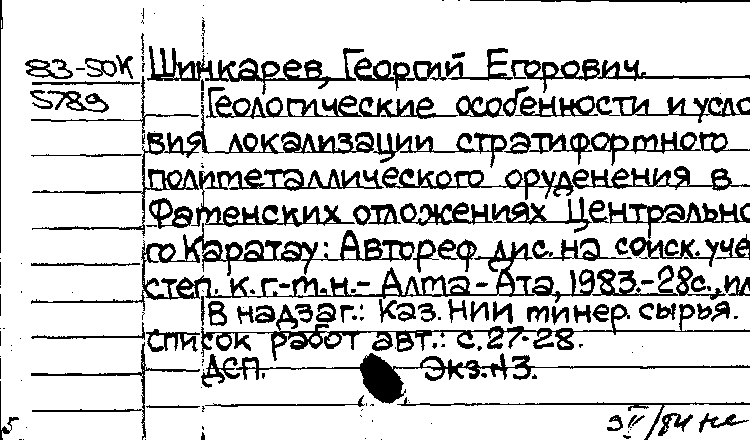 83-50К Шинкарев, Георгий Егорович.
5789 Геологические особенности и усло
вия локализации стратифортного
политеталлического оруденения в
Фатенских отложениях Центрально
го Каратау: Автореф. дис. на соиск. уче
степ. к. г.-т.н.- Алта-Ата, 1983.-28с., ил
В надзаг.: Каз. НИИ тинер. сырья.
Список работ авт.: с.27-28.
ДСП. Экз.N3.